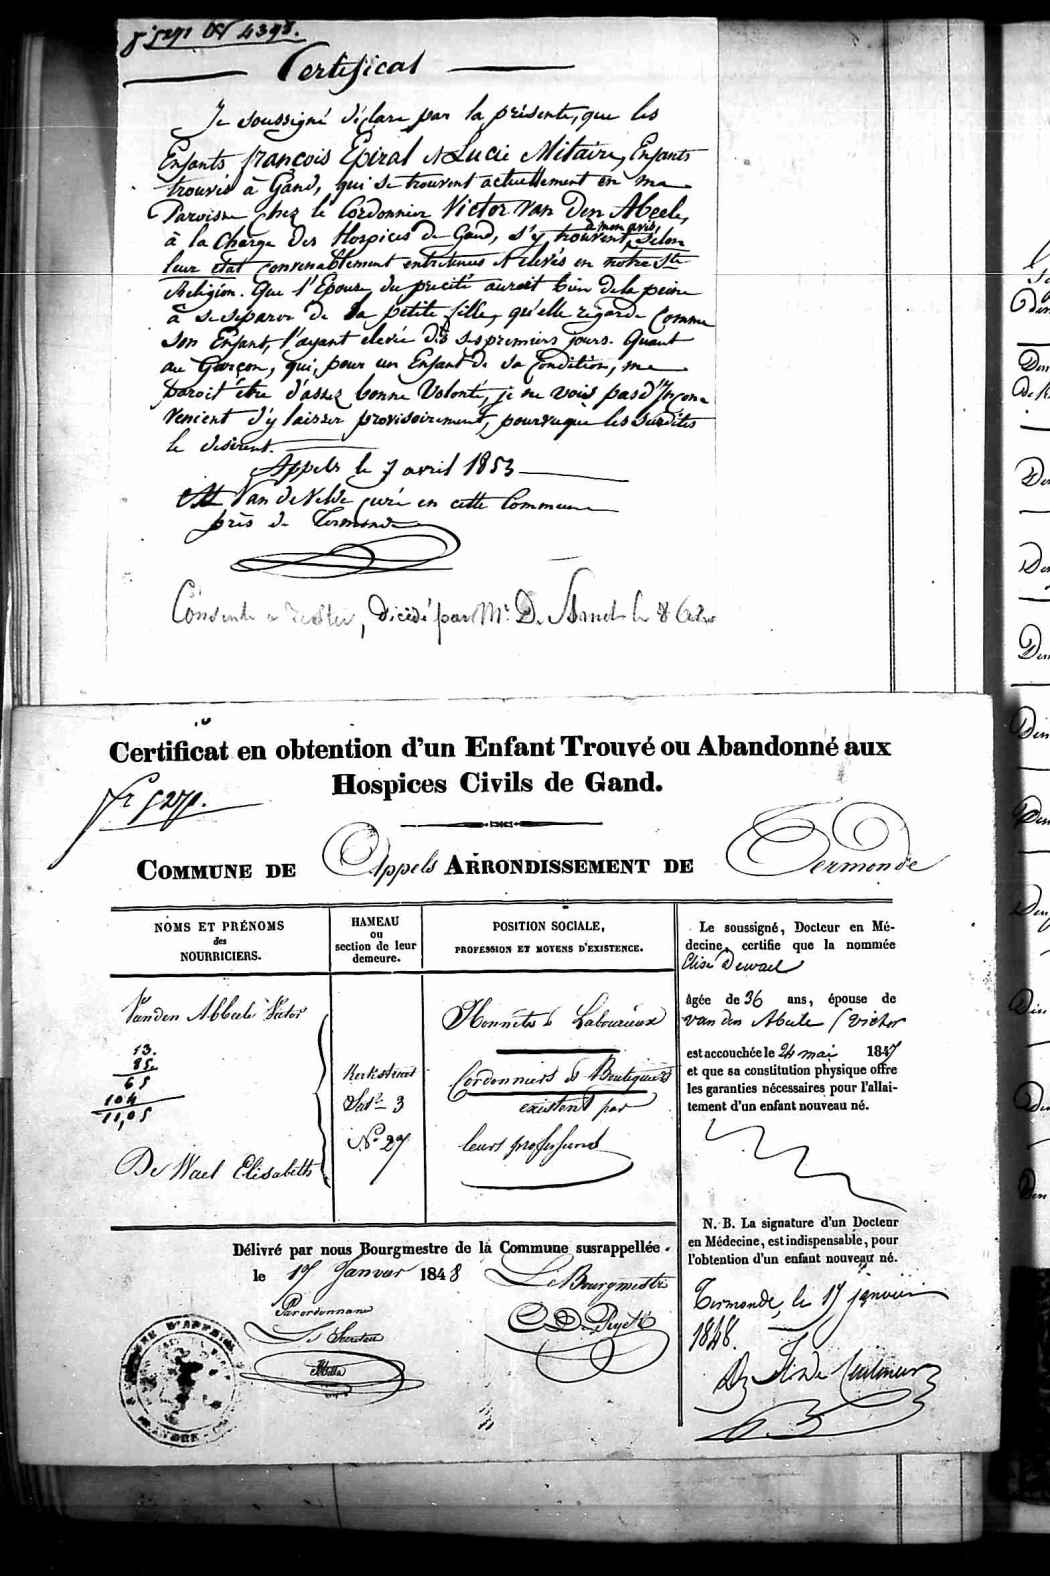 Certificat
Je soussigné déclare par la présente, que les
Enfants françois Epiral & Lucie Militaire, Enfants
trouvés à Gand, qui se trouvent actuellement en ma
Paroisse chez le Cordonnier Victor Van Den Abeele,
à la Charge des Hospices de Gand, s'y trouvent, à mon avis, selon
leur état convenablement entretenus & élevés en notre Ste
Religion. Que l'Epouse du precité auroit bien de la peine
à se separer de la petite fille, qu'elle regarde comme
son Enfant, l'ayant elevée dès ses premiers jours. Quant
au Garçon, qui, pour un Enfant de sa Condition, me
paroit être d'assez bonne Volonté, je ne vois pas d'Incon
venient d'y laisser provisoirement, pourvuque les Susdites
le desirent.
Appels le 7 avril 1853
Van de Velde curé en cette Commune
près de Termonde
décédé par Mr. D.
Certificat en obtention d'un Enfant Trouvé ou Abandonné aux
Hospices Civils de Gand.
fr 5271.
COMMUNE DE Appels ARRONDISSEMENT DE Termonde
NOMS ET PRÉNOMS
des
NOURRICIERS.
HAMEAU
ou
section de leur
demeure.
POSITION SOCIALE,
PROFESSION ET MOYENS D'EXISTENCE.
Vanden Abbeele Victor
13.
85
65
104
11,05
De Wael Elisabeth
Kerkstraet
Sect. 3
No 27
Honnêtes & Labourieux
Cordonniers & Boutiquiers
existent par
leurs professions
Le soussigné, Docteur en Mé-
decine, certifie que la nommée
Elise Dewael
âgée de 36 ans, épouse de
van den Abeele Victor
est accouchée le 24 mai 1847
et que sa constitution physique offre
les garanties nécessaires pour l'allai-
tement d'un enfant nouveau né.
N. B. La signature d'un Docteur
en Médecine, est indispensable, pour
l'obtention d'un enfant nouveau né.
Termonde, le 17 janvier
1848.
Délivré par nous Bourgmestre de la Commune susrappellée.
le 17 Janvier 1848
Le Bourgmestre
Par ordonnance